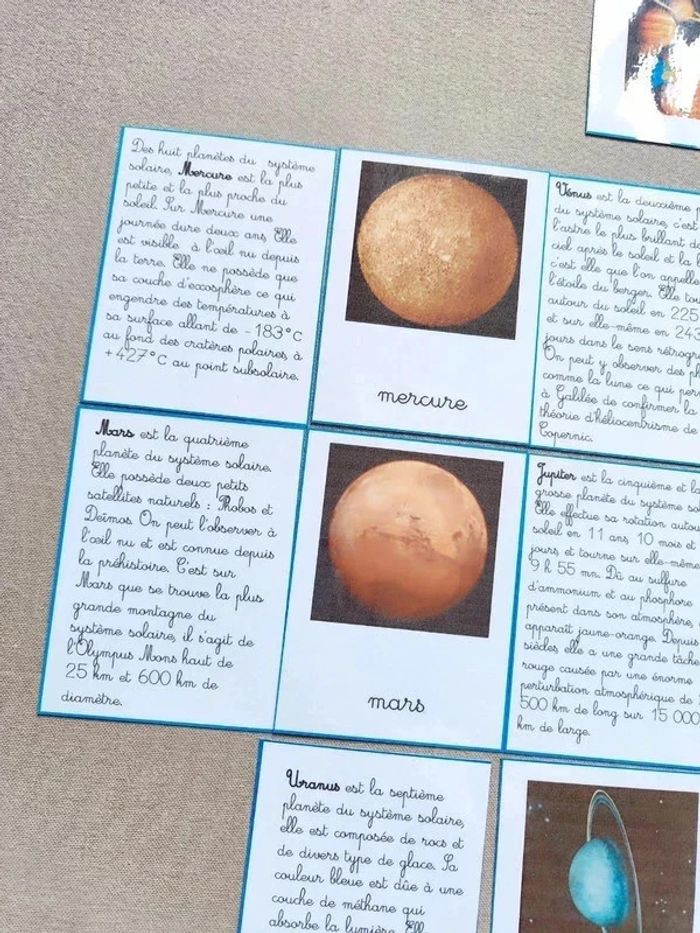 Des huit planètes du système
solaire, Mercure est la plus
petite et la plus proche du
soleil. Sur Mercure une
journée dure deux ans. Elle
est visible à l'œil nu depuis
la terre. Elle ne possède que
sa couche d'exosphère ce qui
engendre des températures à
sa surface allant de -183°C
au fond des cratères polaires à
+427°C au point subsolaire.
mercure
Vénus est la deuxième
du système solaire, c'est
l'astre le plus brillant du
ciel après le soleil et la
c'est elle que l'on appelle
l'étoile du berger. Elle
autour du soleil en 225
et sur elle-même en 243
jours dans le sens
On peut y observer des
comme la lune ce qui
à Galilée de confirmer la
théorie d'héliocentrisme de
Copernic.
Mars est la quatrième
planète du système solaire.
Elle possède deux petits
satellites naturels : Phobos et
Deïmos. On peut l'observer à
l'œil nu et est connue depuis
la préhistoire. C'est sur
Mars que se trouve la plus
grande montagne du
système solaire, il s'agit de
l'Olympus Mons haut de
25 km et 600 km de
diamètre.
mars
Jupiter est la cinquième et la
grosse planète du système
Elle effectue sa rotation
soleil en 11 ans 10 mois et
jours et tourne sur elle-même
9 h 55 mn. Dû au sulfure
d'ammonium et au phosphore
présent dans son atmosphère,
apparaît jaune-orange. Depuis
siècles elle a une grande tâche
rouge causée par une énorme
perturbation atmosphérique de
500 km de long sur 15 000
km de large.
Uranus est la septième
planète du système solaire,
elle est composée de rocs et
de divers type de glace. Sa
couleur bleue est dûe à une
couche de méthane qui
absorbe la lumière. Ell